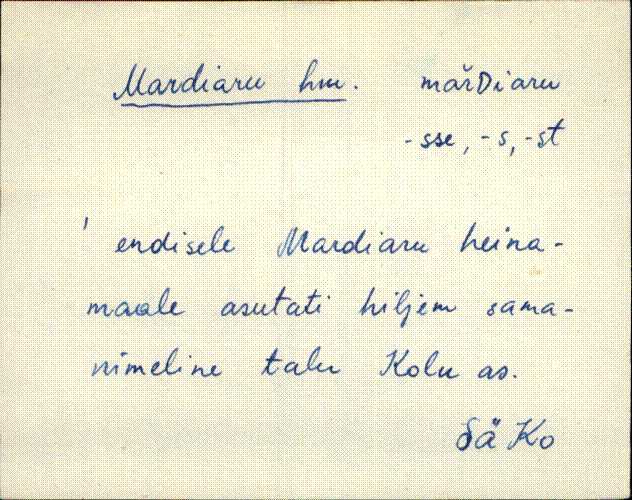 Mardiaru hm. mařDiaru
-sse, -s, -st
' endisele Mardiaru heina-
maale asutati hiljem sama-
nimeline talu Kolu as.
Ko